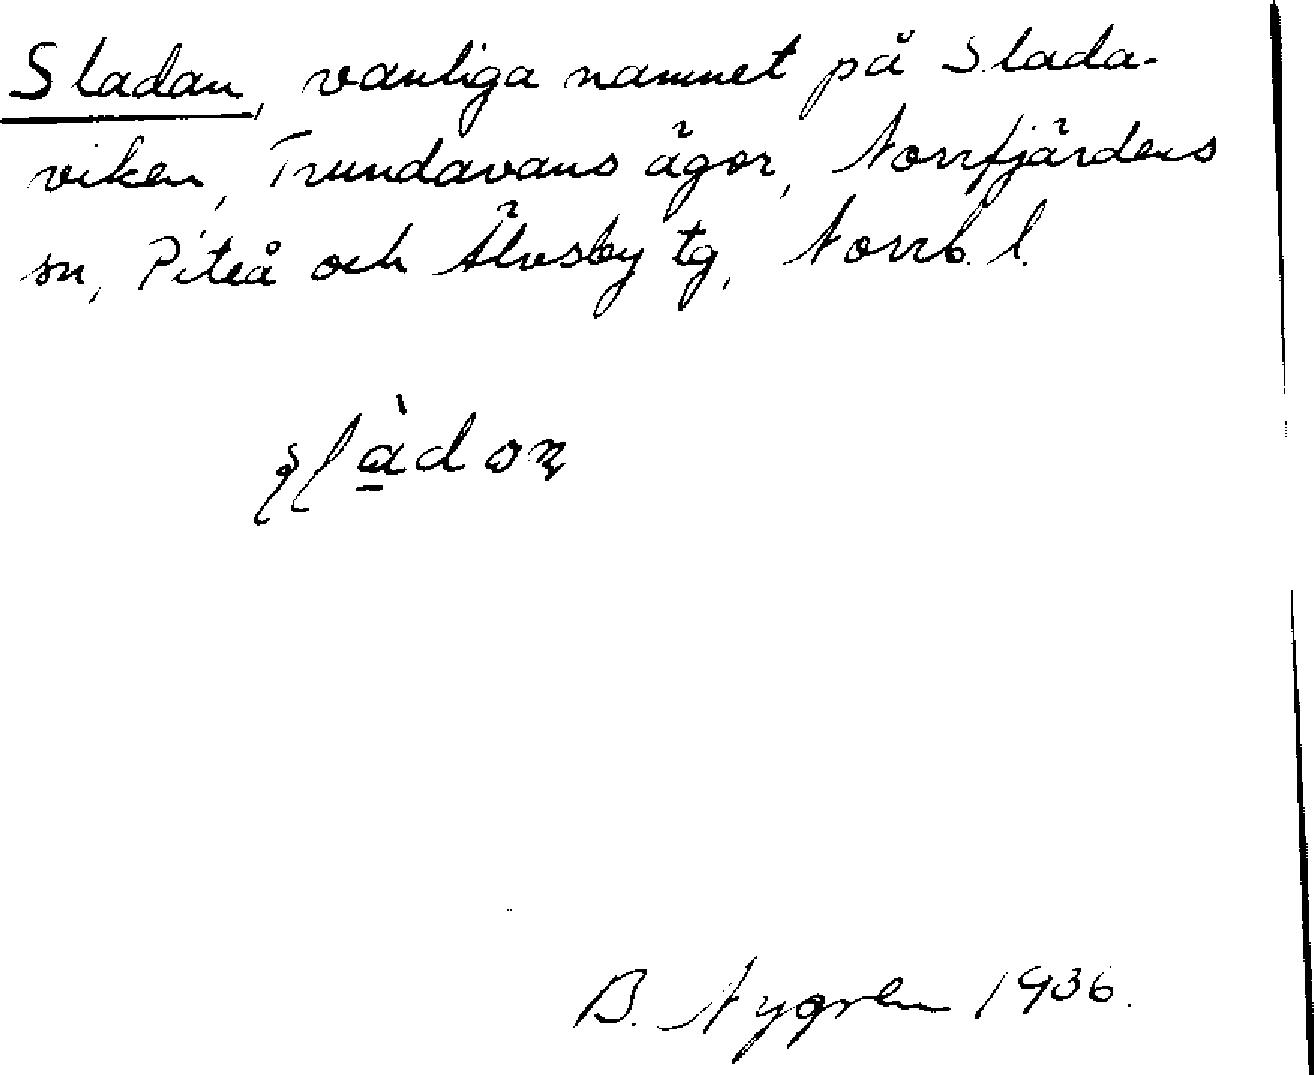 Sladan, vanliga namnet på Slada-
viken, Trundavans ägor, Norrfjärdens
sn, Piteå och Älvsby tg, Norrb. l.
B. Nygren 1936.